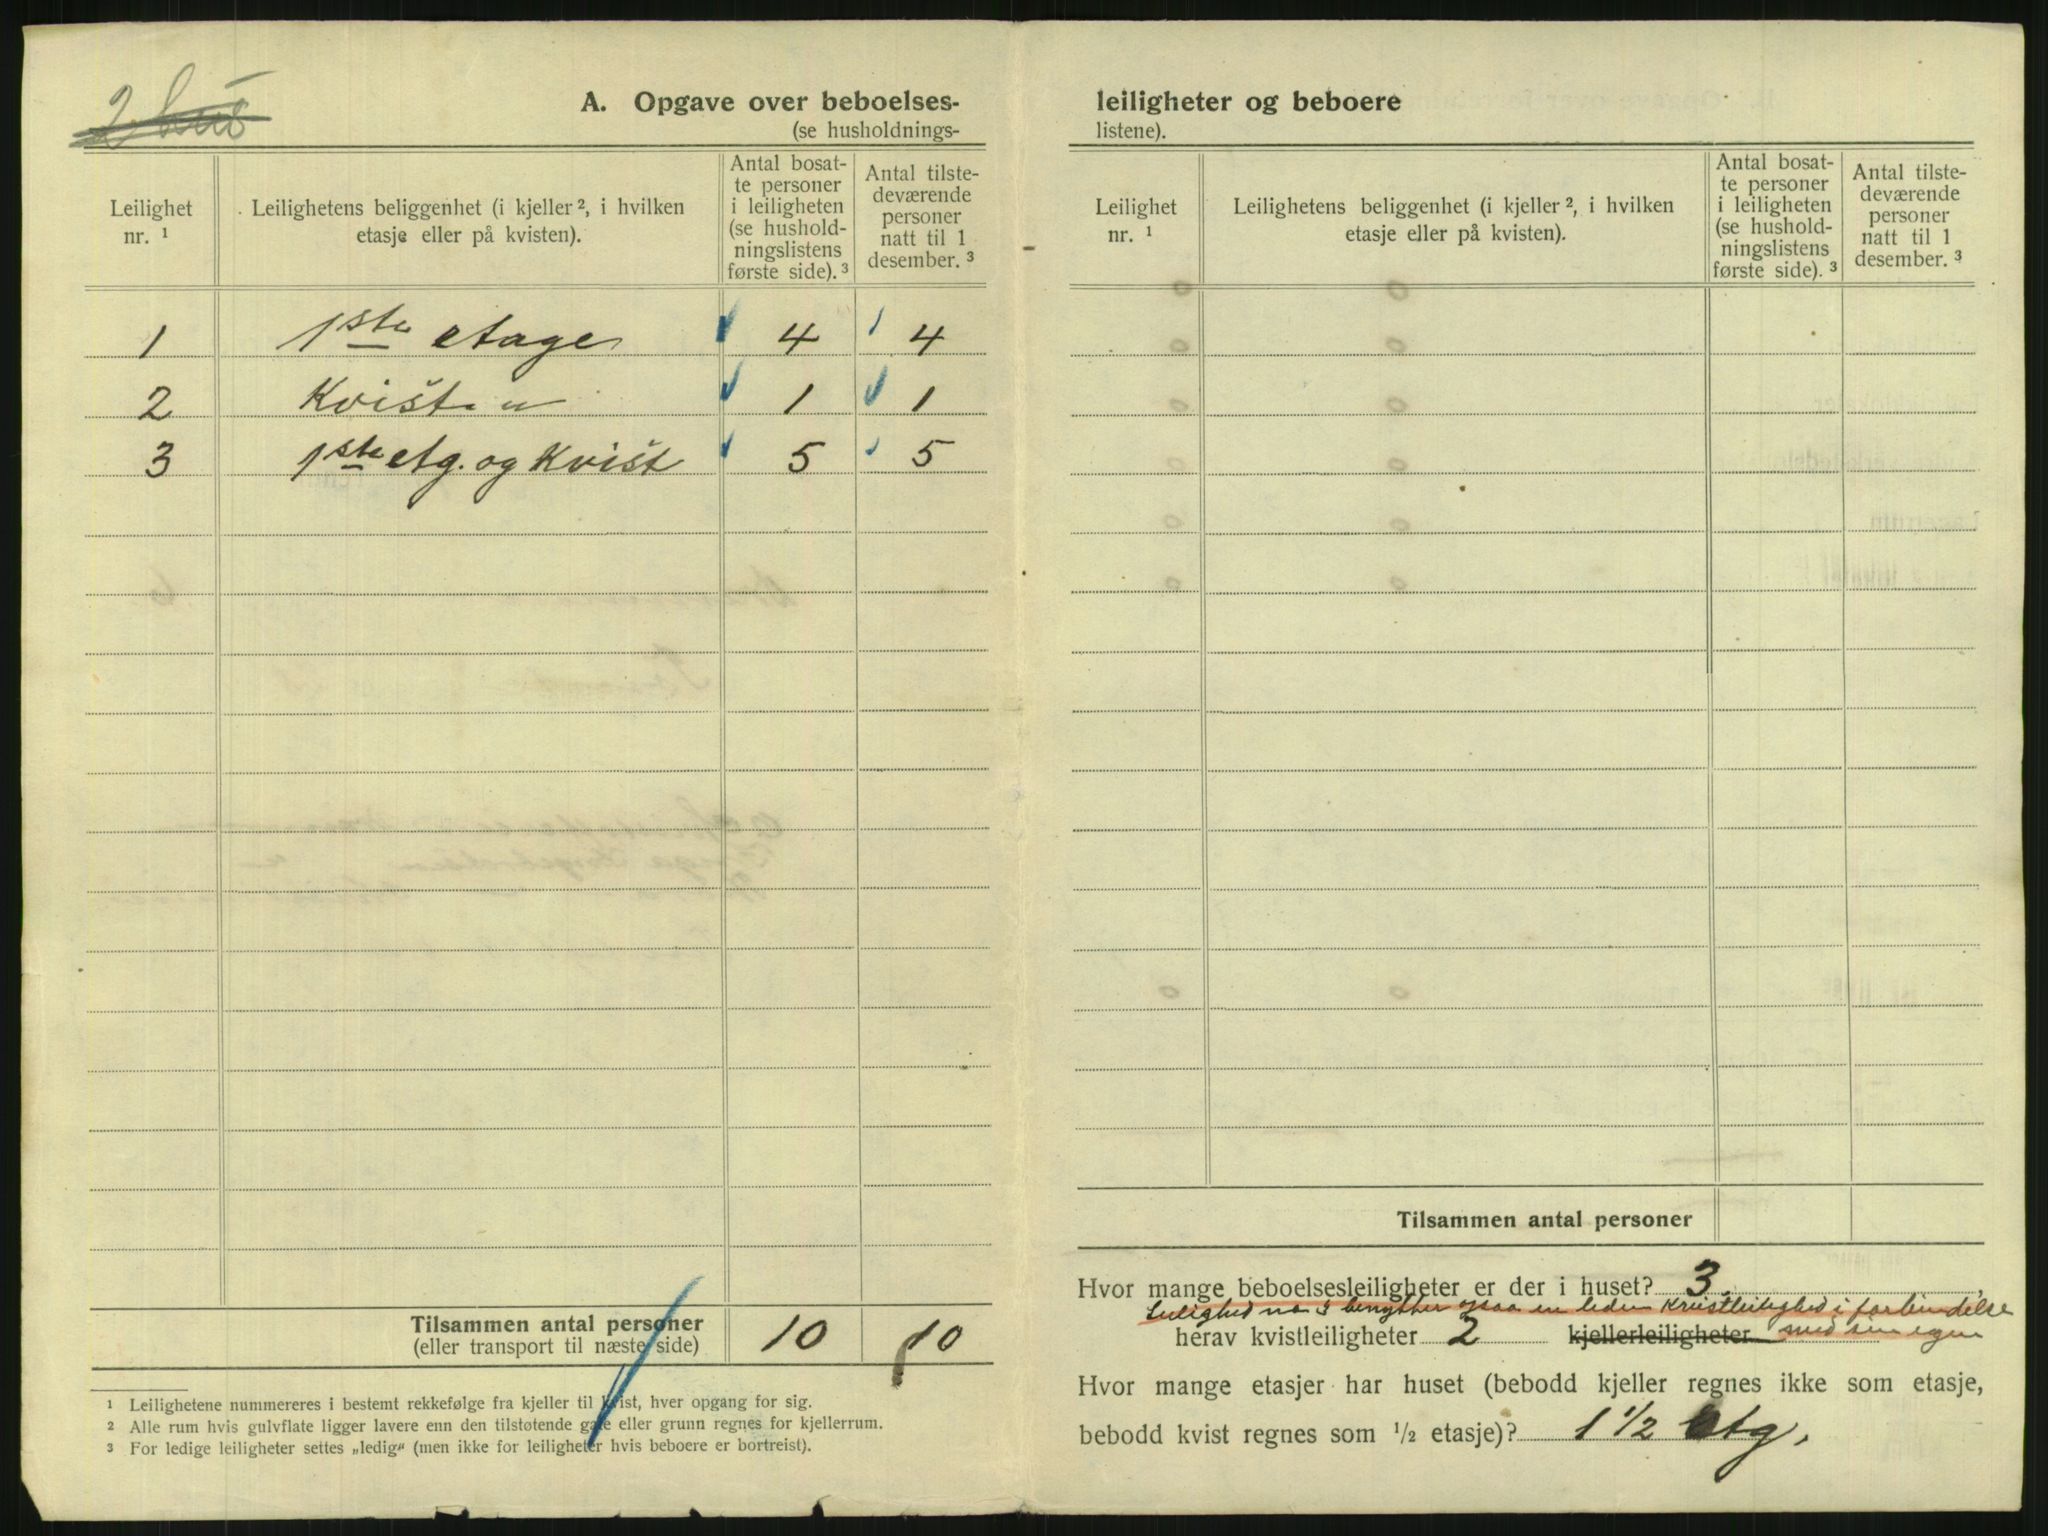 2 hus
A. Opgave over beboelses-
(se husholdnings-
Leilighet nr. ¹
Leilighetens beliggenhet (i kjeller ², i hvilken etasje eller på kvisten).
Antal bosat-
te personer
i leiligheten
(se hushold-
ningslistens
første side). ³
Antal tilste-
deværende
personer
natt til 1
desember. ³
1 1ste etage 4 4
2 Kvisten 1 1
3 1ste etg. og Kvist 5 5
Tilsammen antal personer 10 10
(eller transport til næste side)
¹ Leilighetene nummereres i bestemt rekkefølge fra kjeller til kvist, hver opgang for sig.
² Alle rum hvis gulvflate ligger lavere enn den tilstøtende gate eller grunn regnes for kjellerrum.
³ For ledige leiligheter settes „ledig“ (men ikke for leiligheter hvis beboere er bortreist).
leiligheter og beboere
listene).
Leilighet nr. ¹
Leilighetens beliggenhet (i kjeller ², i hvilken etasje eller på kvisten).
Antal bosat-
te personer
i leiligheten
(se hushold-
ningslistens
første side). ³
Antal tilste-
deværende
personer
natt til 1
desember. ³
Tilsammen antal personer
Hvor mange beboelsesleiligheter er der i huset? 3.
Leilighed no 3 benytter ogsaa en leden Kvistleilighed i forbindelse
herav kvistleiligheter 2 kjellerleiligheter med sin egen
Hvor mange etasjer har huset (bebodd kjeller regnes ikke som etasje,
bebodd kvist regnes som ½ etasje)? 1 1/2 etg.